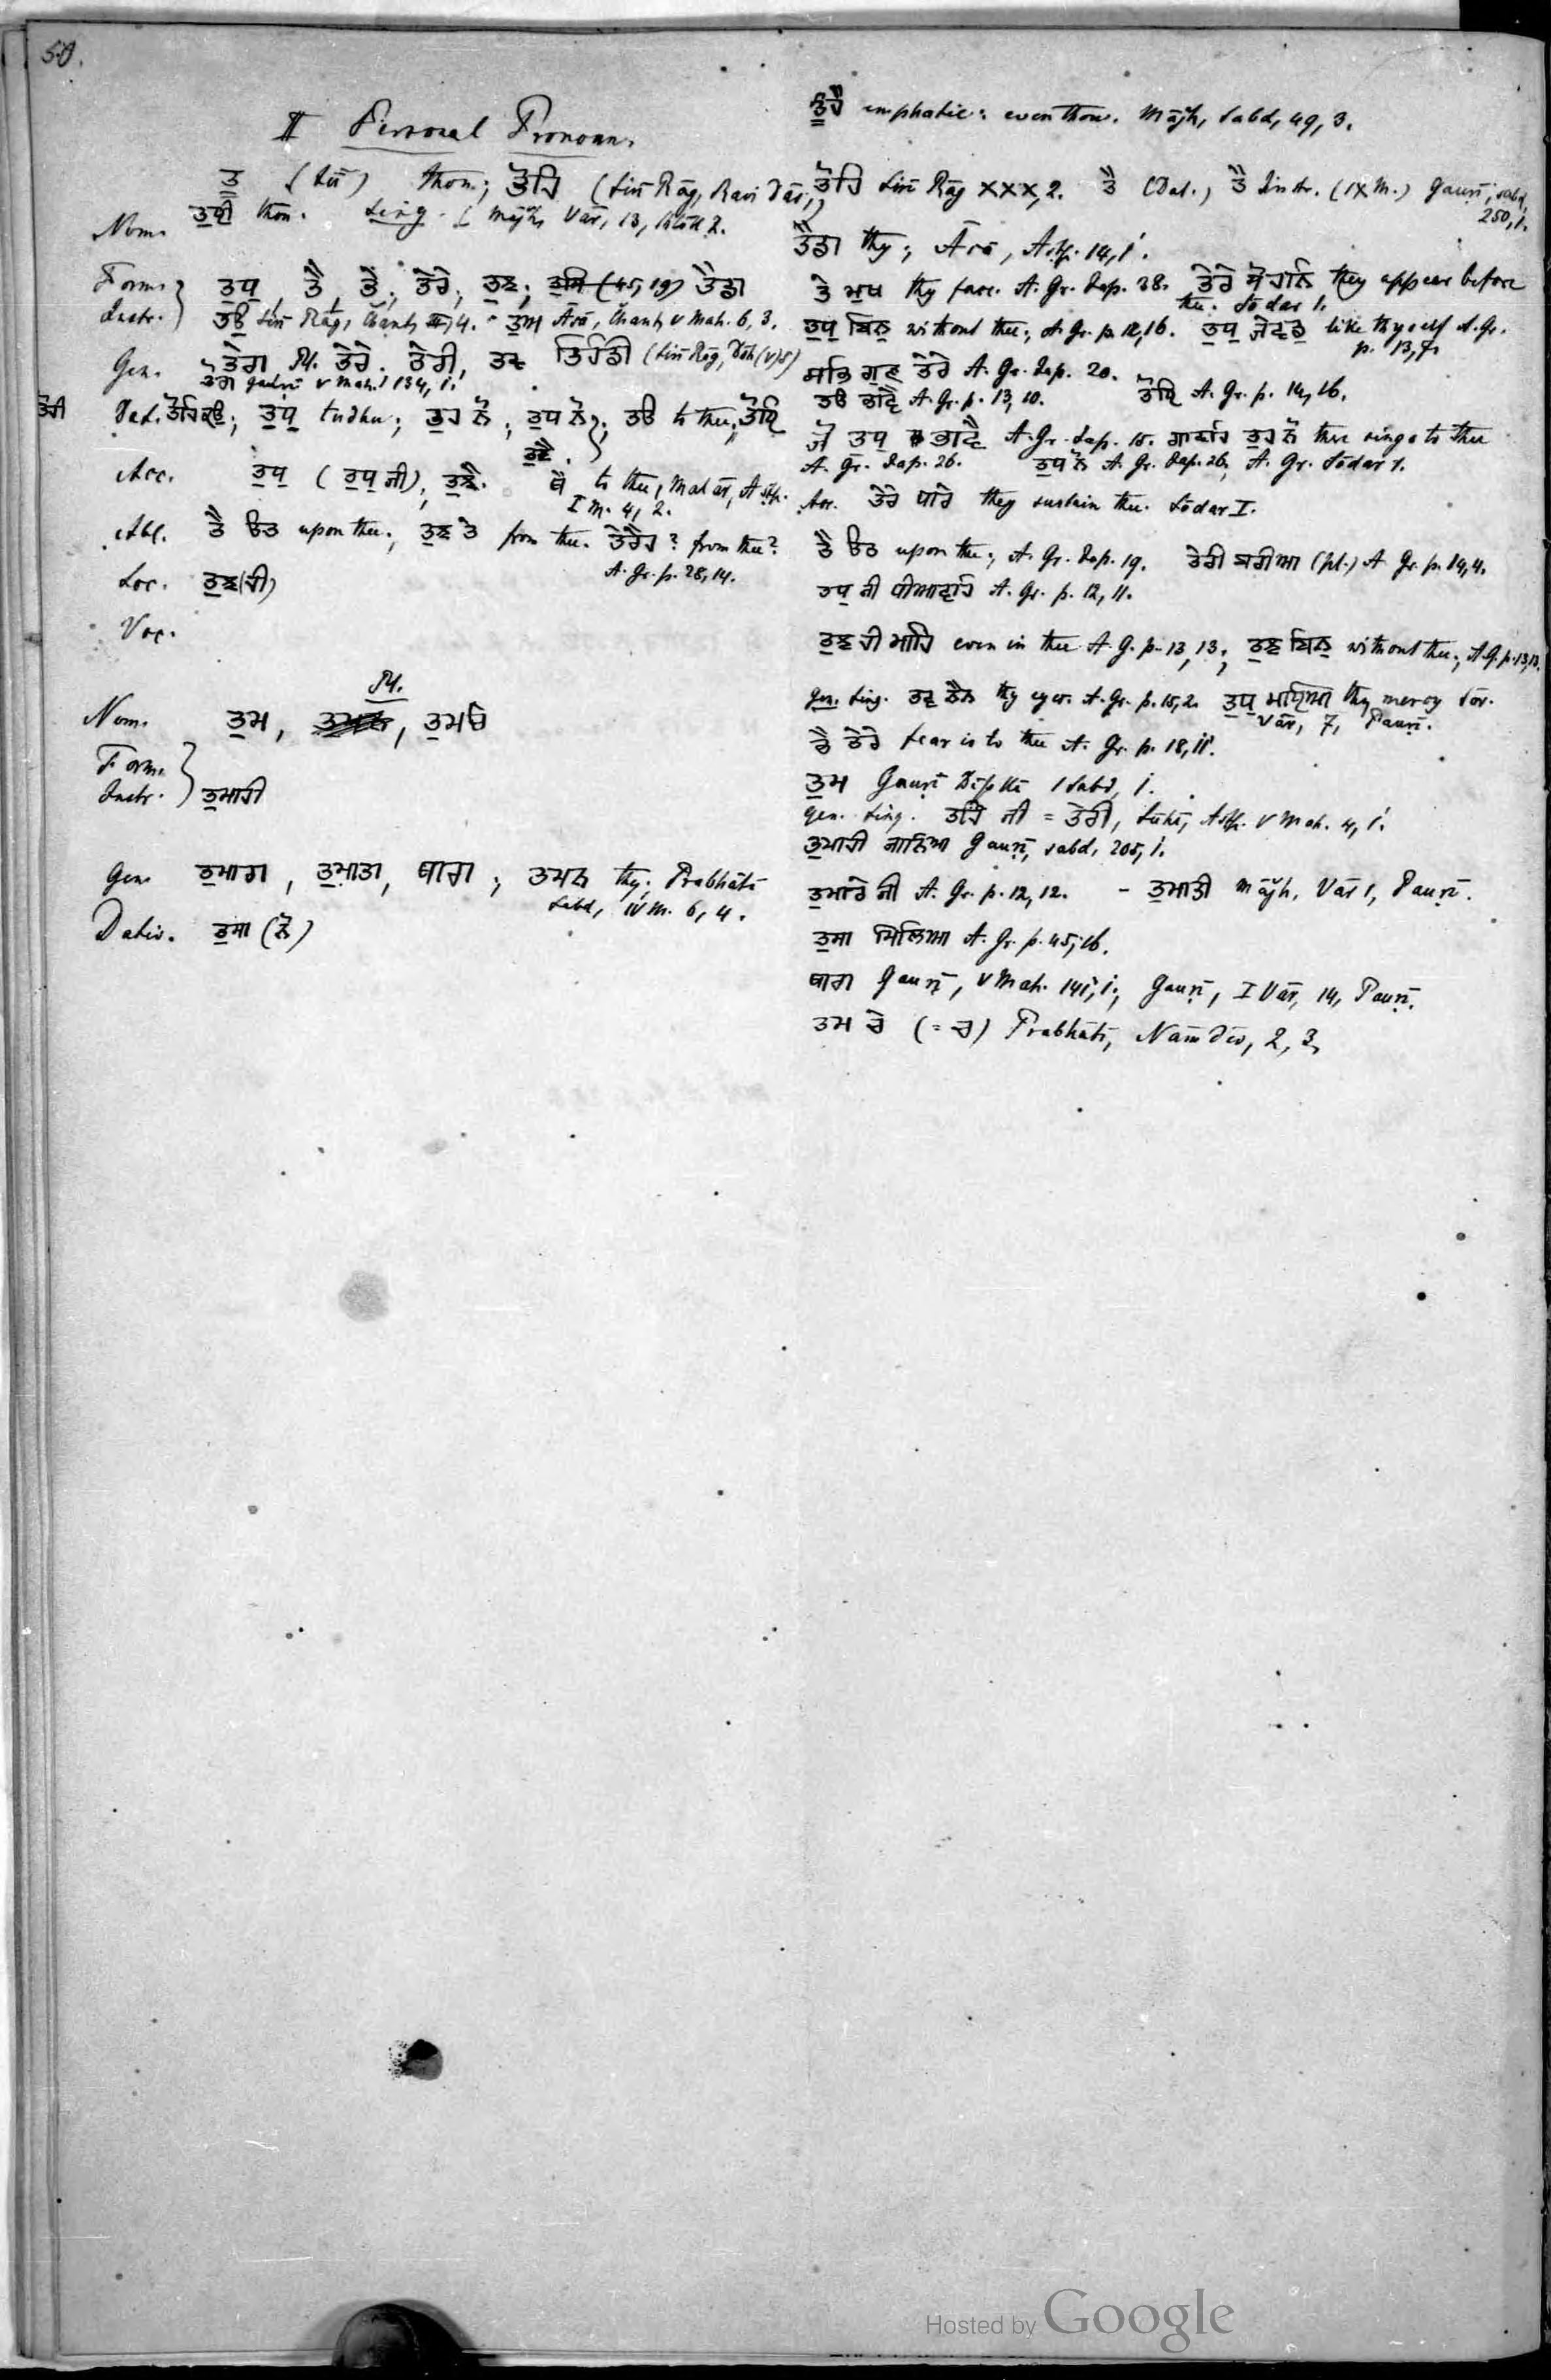 50.
II Personal Pronouns
ਤੂ (Sir) thou; ਤੋਹਿ (Siri Rāg, Ravi Dās,)
ਤੁਧੀ thou. Sing. [Mājh, Vār, 13,
Nom.
Form. ਤੁਧੁ, ਤੈ, ਤੇ; ਤੇਰੇ; ਤੁਝ; (45,19) ਤੈਡਾ
Instr. ਤਉ Siri Rāg, Chant, 4. ਤੁਮ Āsā, Chant, V Mah. 6, 3.
Gen. ਤੇਰਾ Pl. ਤੇਰੇ. ਤੇਰੀ, ਤਵ ਤਿਹੰਡੀ (Siri Rāg,
ਤੋਰਾ Gauṛī V Mah. 134, 1.
ਤੋਹੀ
Dat. ਤੋਹਿਕਉ; ਤੁਧੁ tudhu; ਤੁਹ ਨੋ; ਤੁਧ ਨੋ; ਤਉ to thee; ਤੋਹਿ
ਤੁਝੈ.
Acc. ਤੁਧੁ (ਤੁਧੁ ਜੀ), ਤੁਝੈ. ਥੈ to thee, Malār, Aṣṭp.
I M. 4, 2.
Abl. ਤੈ ਓਤ upon thee; ਤੁਝ ਤੇ from thee. ਤੇਰੈਹ? from thee?
A. Gr. p. 28, 14.
Loc. ਤੁਝ(ਹੀ)
Voc.
Pl.
Nom. ਤੁਮ, ਤੁਮਚੇ
Form.
Instr. ਤੁਮਾਰੀ
Gen. ਤੁਮਾਰਾ, ਤੁਮਾਤਾ, ਥਾਰਾ; ਤੁਮਨ thy; Prabhātī
Sabd, IV M. 6, 4.
Dativ. ਤੁਸਾ (ਨੋ)
ਤੂਹੈ emphatic: even thou. Mājh, Sabd, 49, 3.
ਤੋਹਿ Siri Rāg XXX, 2. ਤੈ (Dat.) ਤੈ Instr. (IX M.) Gauṛī, sabd,
250, 1.
ਤੈਡਾ thy; Āsā, Aṣṭp. 14, 1.
ਤੇ ਮੁਖ thy face. A. Gr. Jap. 28. ਤੇਰੇ ਸੋਹਨਿ they appear before
thee. Sōdar 1.
ਤੁਧੁ ਬਿਨੁ without thee; A. Gr. p. 12, 16. ਤੁਧੁ ਜੇਵਡੁ like thyself A. Gr.
p. 13, 7.
ਸਭਿ ਗੁਣ ਤੇਰੇ A. Gr. Jap. 20.
ਤਉ ਭਾਵੈ A. Gr. p. 13, 10. ਤੋਹਿ A. Gr. p. 14, 16.
ਜੋ ਤੁਧੁ ਭਾਵੈ A. Gr. Jap. 15. ਗਾਵਹਿ ਤੁਹ ਨੋ there sings to thee
A. Gr. Jap. 26. ਤੁਧ ਨੋ A. Gr. Jap. 26, A. Gr. Sōdar 1.
Acc. ਤੇਰੇ ਧਾਰੇ they sustain thee. Sōdar I.
ਤੈ ਓਤ upon thee; A. Gr. Jap. 19. ਤੇਰੀ ਬਰੀਆ (pl.) A. Gr. p. 14, 4.
ਤੁਧੁ ਜੀ ਧੀਆਵਹਿ A. Gr. p. 12, 11.
ਤੁਝ ਹੀ ਮਾਹਿ even in thee A. G. p. 13, 13; ਤੁਝ ਬਿਨੁ without thee; A. G. p. 13, 13.
gen. sing. ਤਵ ਨੈਨ thy eyes. A. Gr. p. 15, 2. ਤੁਧੁ thy mercy Sor.
Vār, 7, Pauṛī.
ਭੈ ਤੇਰੇ fear is to thee A. Gr. p. 18, 11.
ਤੁਮ Gauṛī 1 sabd, 1.
gen. sing. ਤਹਿ ਜੀ = ਤੇਰੀ, Sūhī, Aṣṭp. V Mah. 4, 1.
ਤੁਮਾਰੀ ਜਾਨਿਆ Gauṛī, sabd, 205, 1.
ਤੁਮਾਰੇ ਜੀ A. Gr. p. 12, 12. – ਤੁਮਾਤੀ Mājh, Vār 1, Pauṛī.
ਤੁਸਾ ਮਿਲਿਆ A. Gr. p. 45, 16.
ਥਾਰਾ Gauṛī, V Mah. 141, 1; Gauṛī, I Vār, 14, Pauṛī.
ਤੁਮ ਚੇ (= ਚਾ) Prabhātī, Nāmdēv, 2, 3,
Hosted by Google